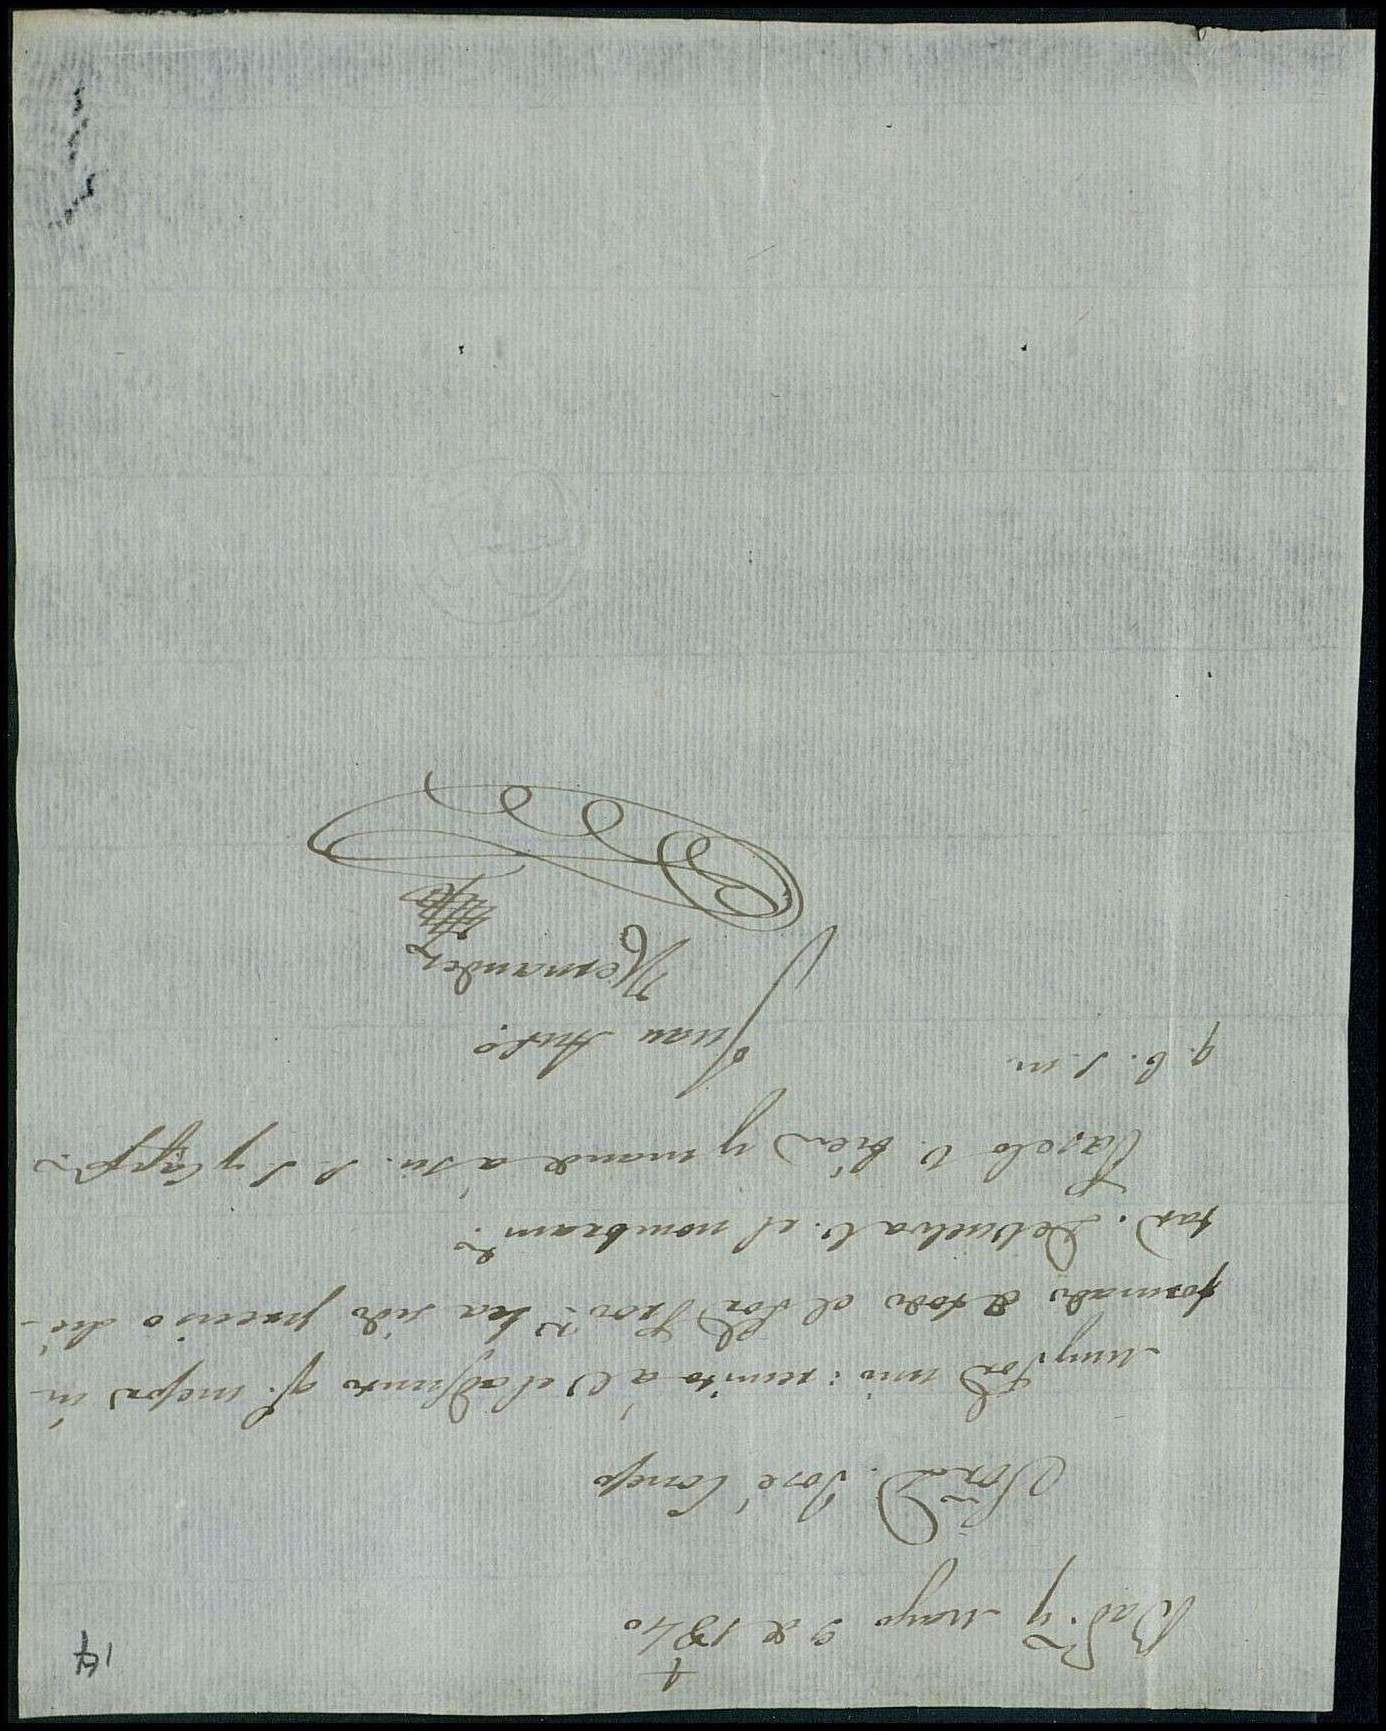 14
†
Bad.z y Mayo 9 de 1840
Sōr. D. José Conejo
Muy Sōr mio: remito à V el adjunto q.e mejor in-
formado de todo el Sōr Prov.r ha sido preciso dic-
tar. Devuelva V. el nombram.to
Paselo V. bien y mande á su S. S. y Capp.n
q. b. s. m.
Juan Ant.o
Hernandez